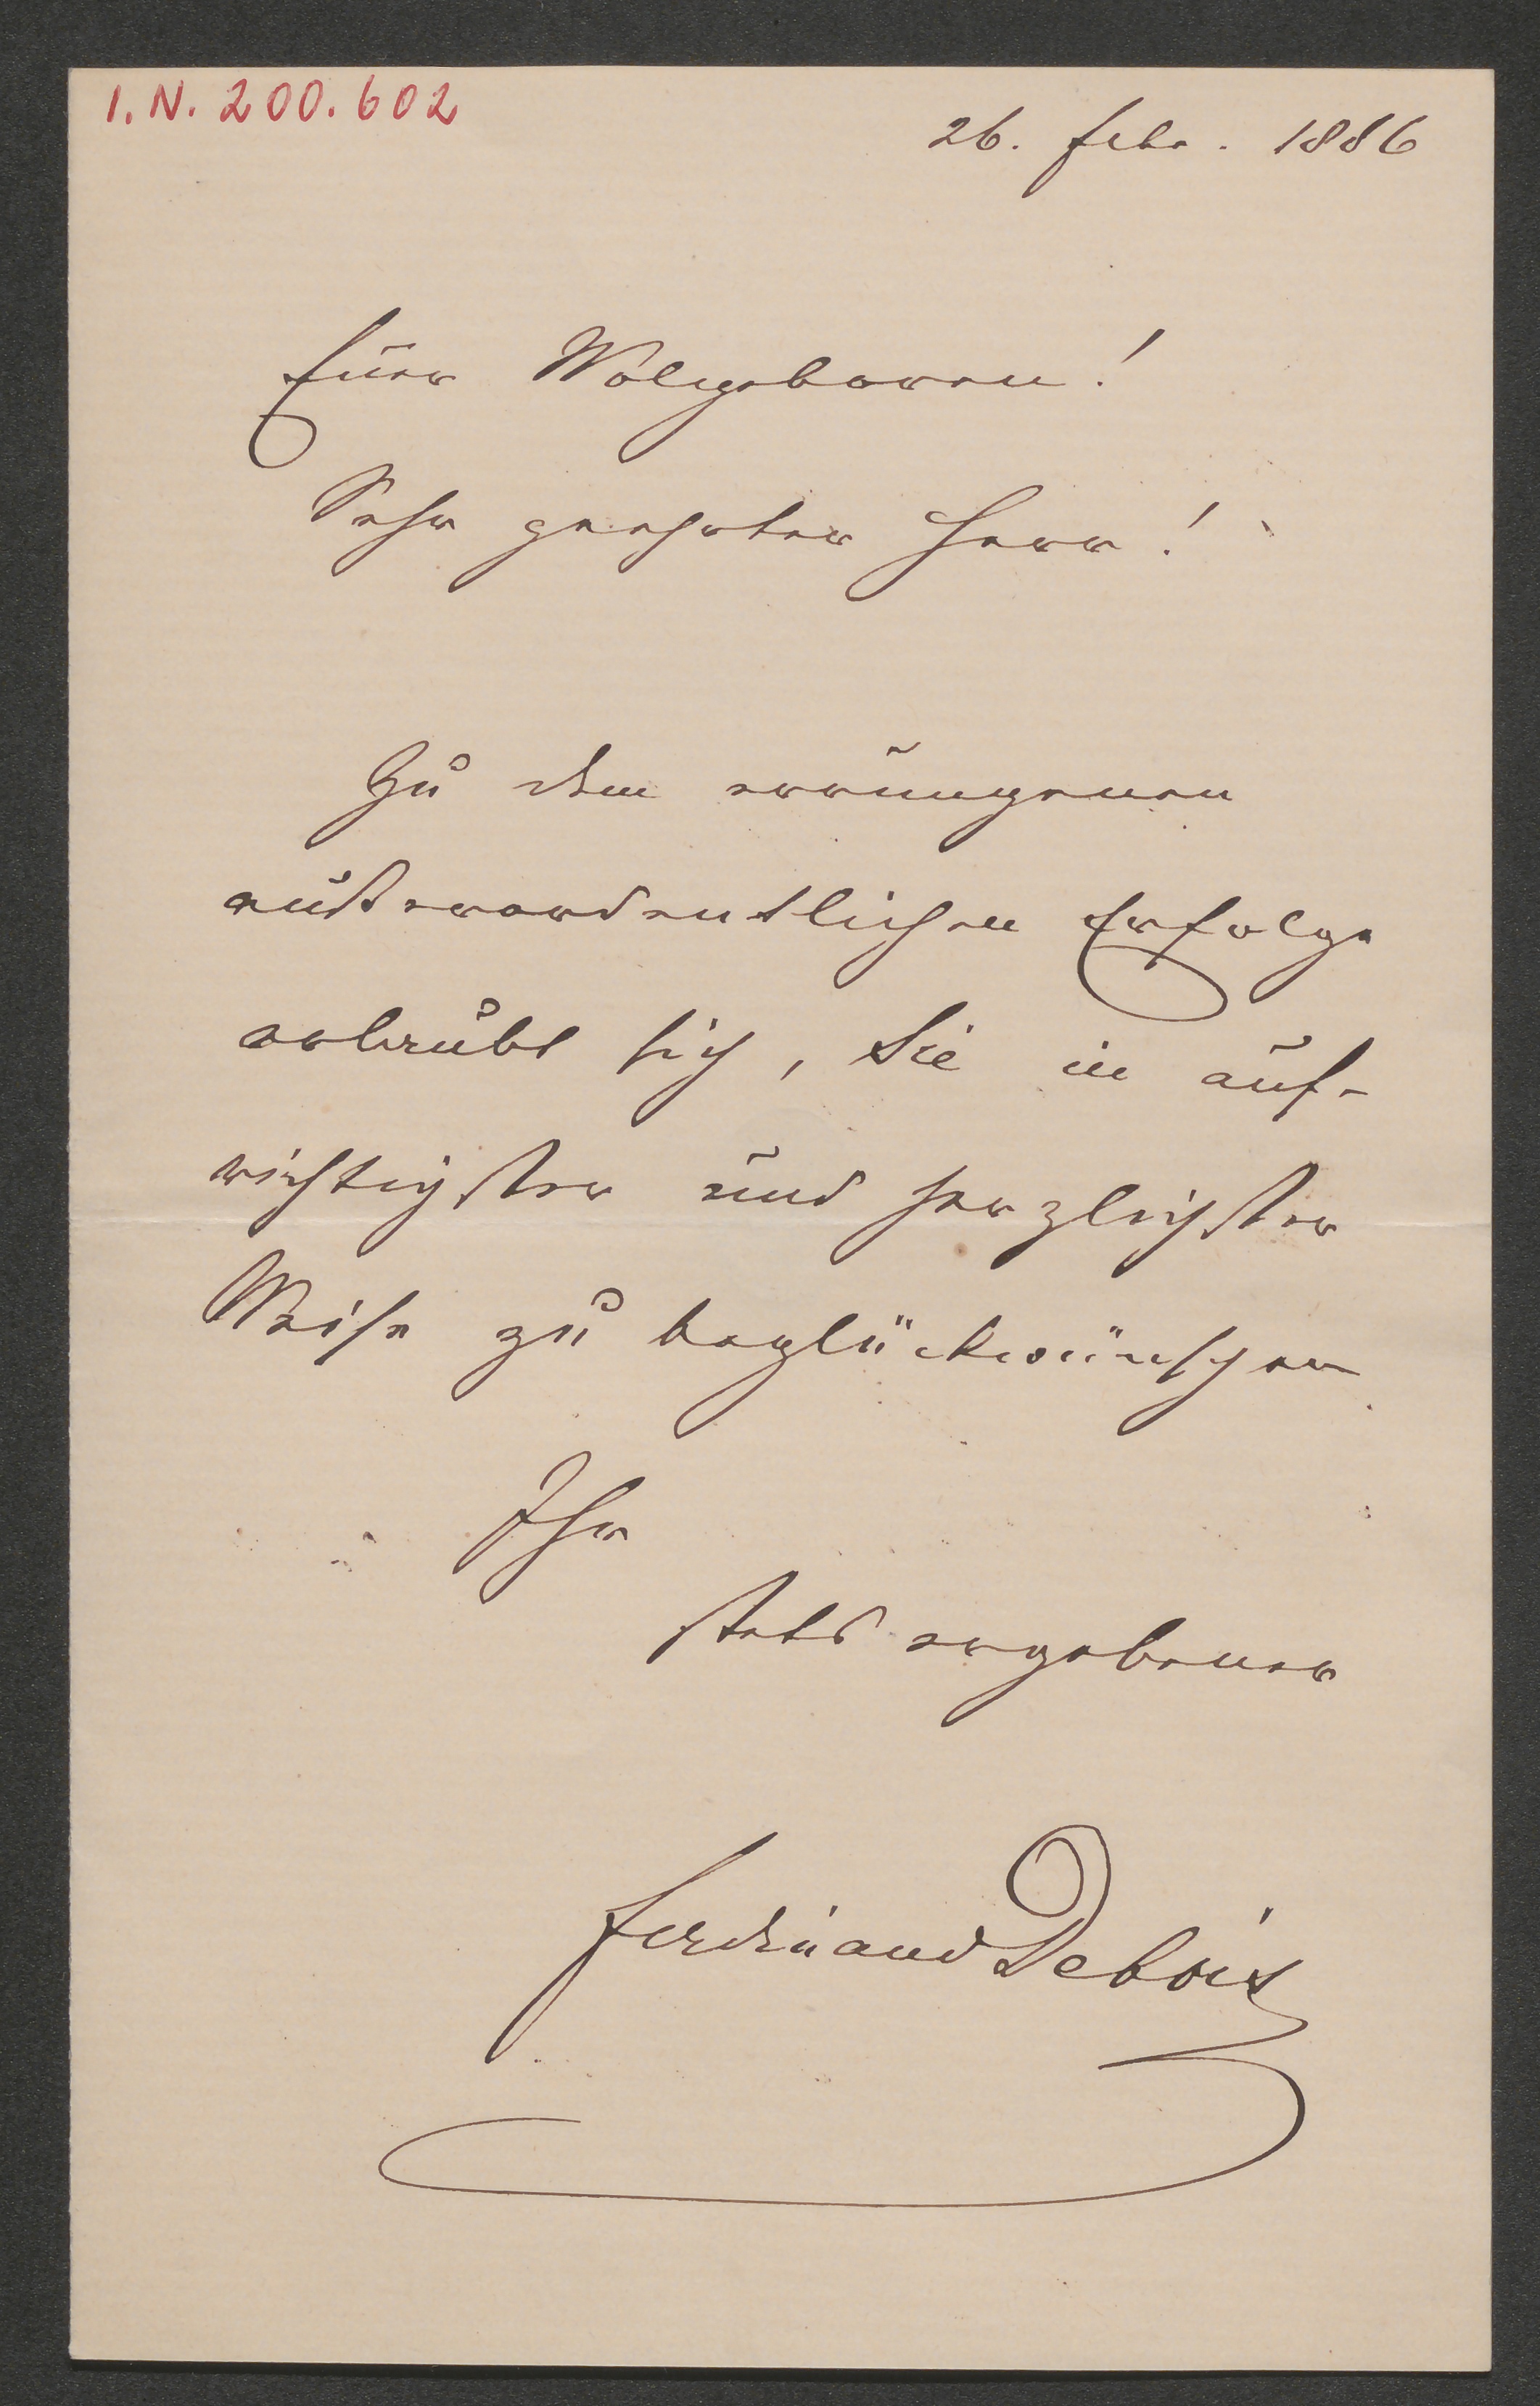 I. N. 200.602
26. Febr. 1886
Euer Wolgeboren!
Sehr geehrter Herr!
Zu dem errungenen
außerordentlichen Erfolge
erlaubt sich, Sie in auf-
richtigster und herzlichster
Weise zu beglückwünschen
Ihr
stets ergebener
Ferdinand Debois